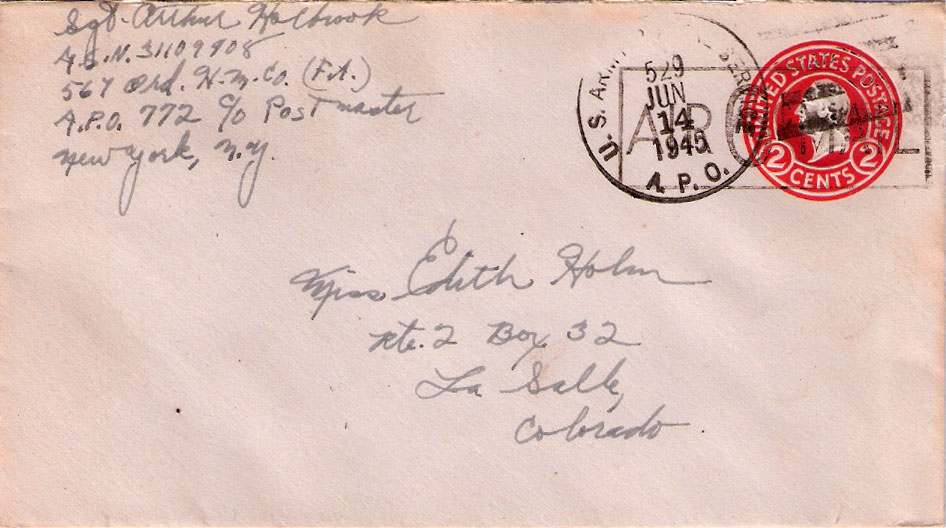 Sgt. Arthur Holbrook
A.S.N. 31109908
567 Ord. H.M.Co. (F.A.)
A.P.O. 772 c/o Postmaster
New York, N.Y.
U.S. ARMY SERVICE
529
JUN
14
1945
A.P.O.
AIR MAIL
UNITED STATES POSTAGE
2 CENTS 2
Miss Edith Holm
Rte. 2 Box 32
La Salle,
Colorado